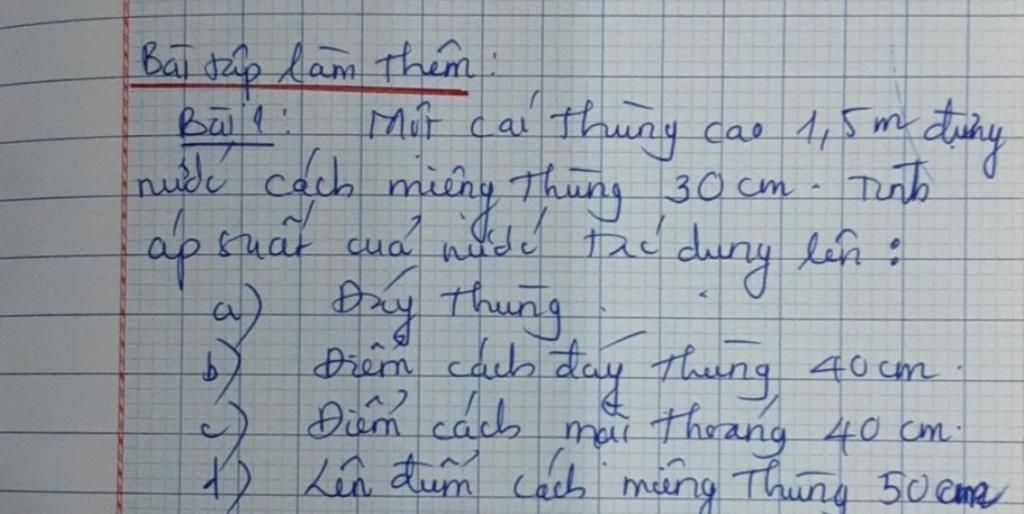 Bài tập làm thêm:
Bài 1: Một cái thùng cao 1,5m đựng
nước cách miệng thùng 30 cm. Tính
áp suất của nước tác dụng lên:
a) Đáy thùng.
b) Điểm cách đáy thùng 40cm.
c) Điểm cách mặt thoáng 40 cm.
d) Lên điểm cách miệng thùng 50cm